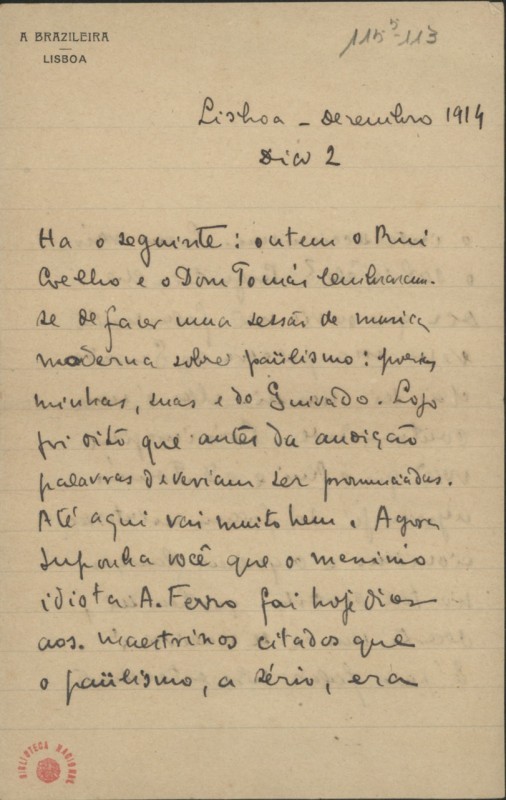 A BRAZILEIRA
LISBOA
115⁵-113
Lisboa - Dezembro 1914
Dia 2
Ha o seguinte: ontem o Rui
Coelho e o Dom Tomás lembraram-
se de fazer uma sessão de musica
moderna sobre paülismo: poesias
minhas, suas e do Guisado. Logo
foi dito que antes da audição
palavras deveriam ser pronunciadas.
Até aqui vai muito bem. Agora
suponha você que o menino
idiota A. Ferro foi hoje dizer
aos maestrinos citados que
o paülismo, a sério, era
BIBLIOTECA NACIONAL